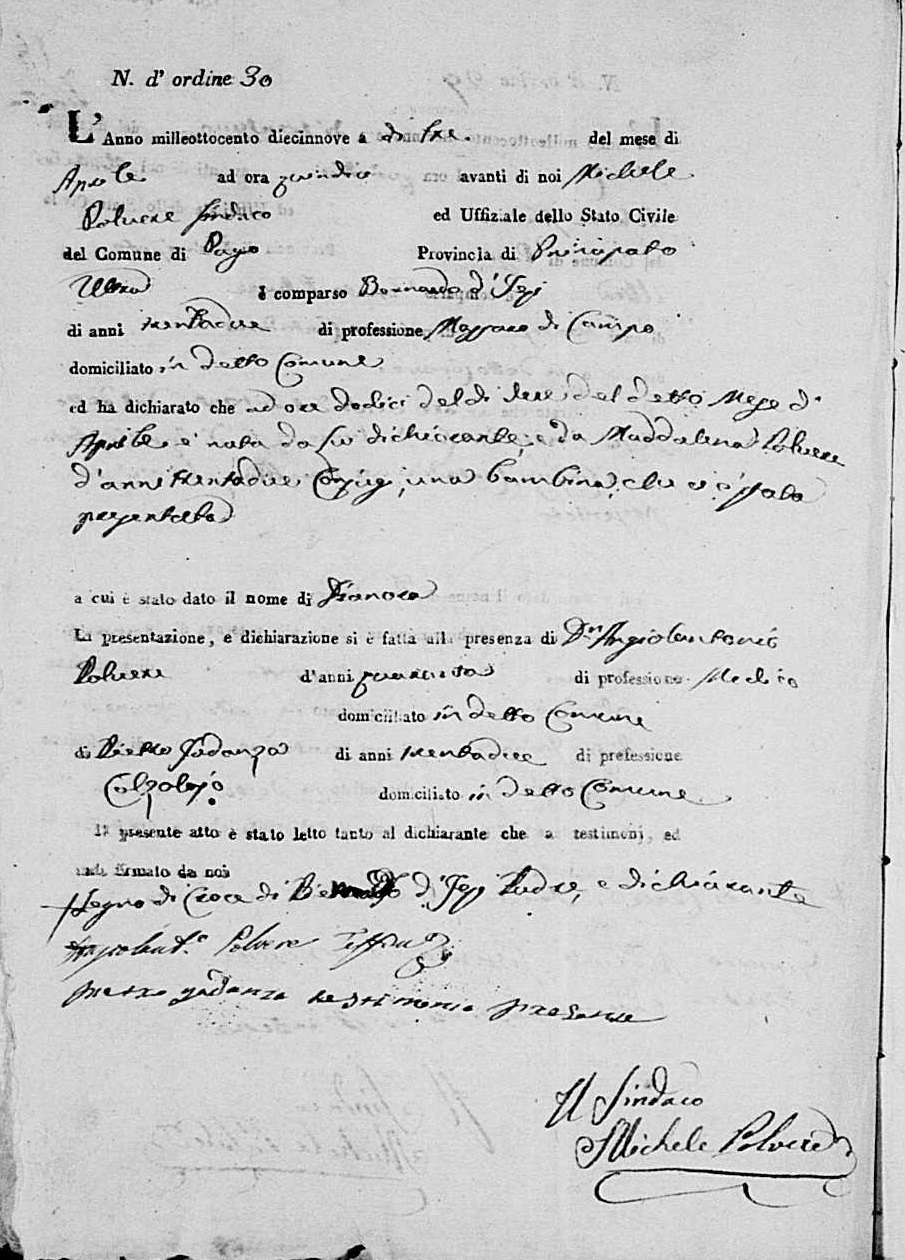 N. d' ordine 30
L' Anno milleottocento diecinnove a di tre. del mese di
Aprile ad ora quindici avanti di noi Michele
Polvere Sindaco ed Uffiziale dello Stato Civile
del Comune di Pago Provincia di Principato
Ultra è comparso Bernardo d'Jesi
di anni trentadue di professione Massaro di Campo
domiciliato in detto Comune
ed ha dichiarato che ad ore dodici del dì del detto Mese d'
Aprile è nata da lui dichiarante, e da Maddalena Polvere
d'anni trentadue Conjugi, una bambina, che ci è stata
presentata
a cui è stato dato il nome di
La presentazione, e dichiarazione si è fatta alla presenza di Dn Angiolantonio
Polvere d'anni quaranta di professione Medico
domiciliato in detto Comune
di Pietro Jadanza di anni trentadue di prefessione
Calzolajo domiciliato in detto Comune
Il presente atto è stato letto tanto al dichiarante che a testimonj, ed
indi firmato da noi
Segno di Croce di Bernardo d'Jesi Padre, e dichiarante
Angiolant.o Polvere
pietro gadanza testimonio presente
Il Sindaco
Michele Polvere